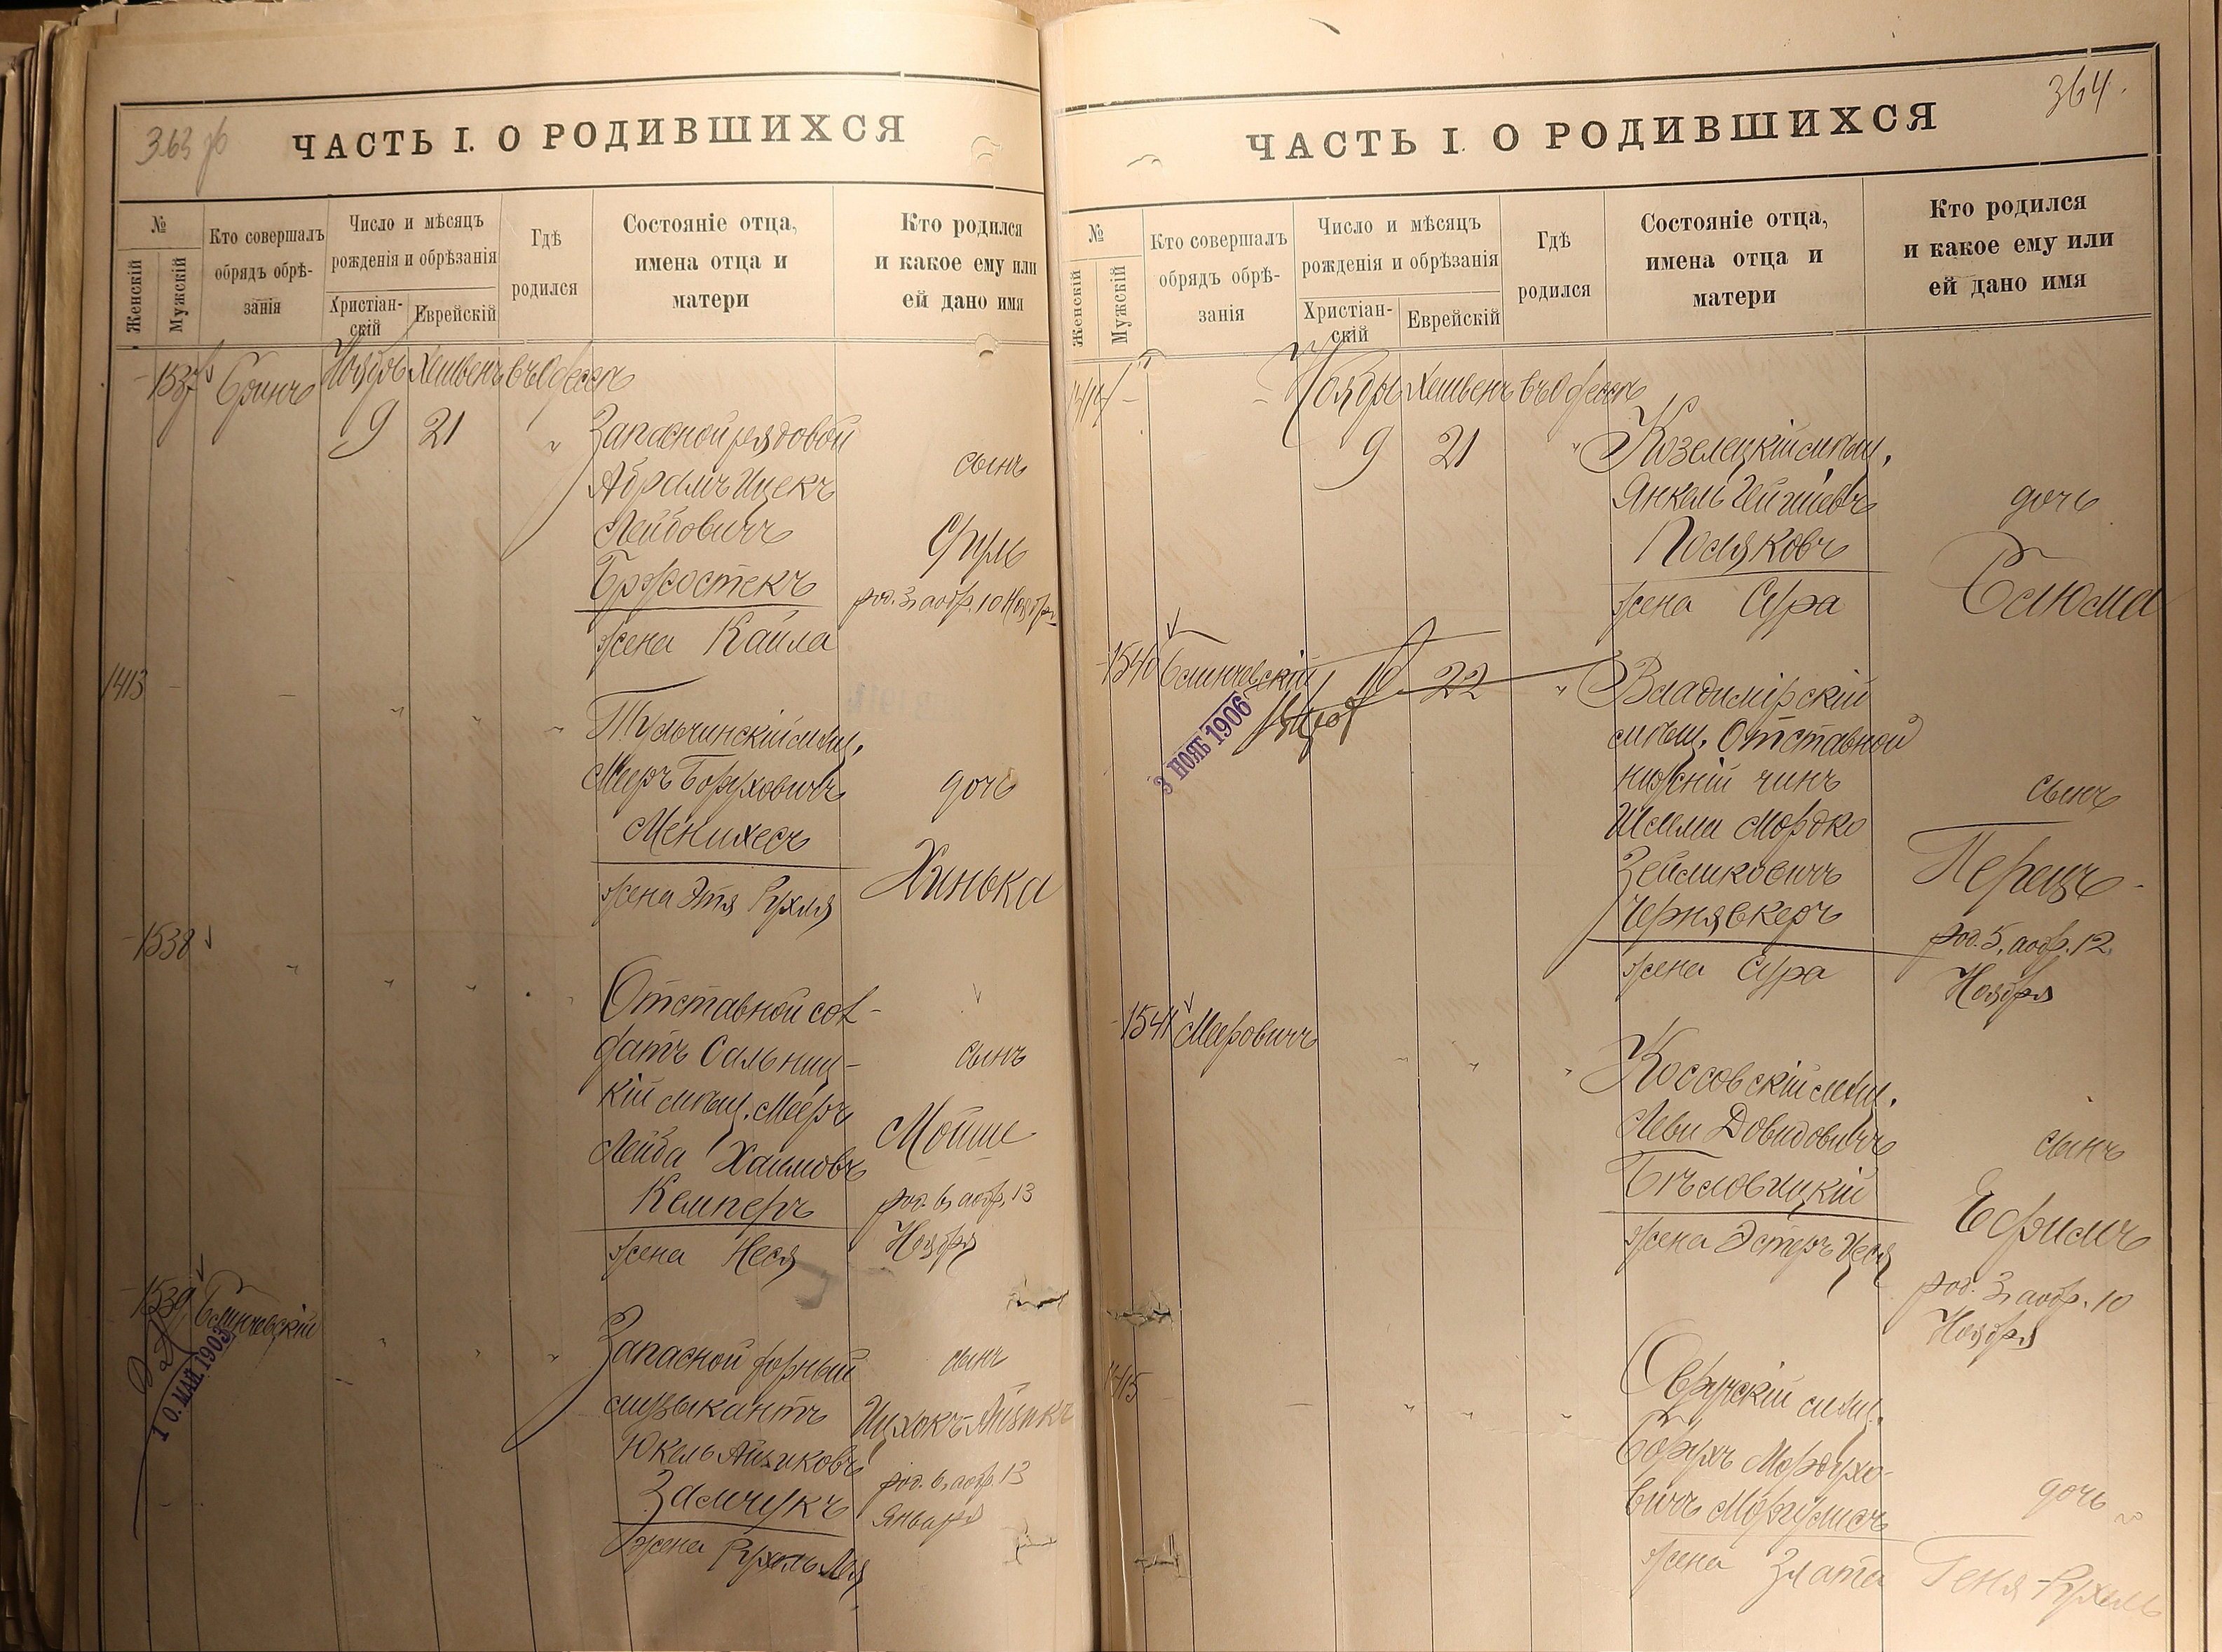 363 об
ЧАСТЬ I. О РОДИВШИХСЯ
№
Женскій
Мужскій
Кто совершалъ
обрядъ обрѣ-
занія
Число и мѣсяцъ
рожденія и обрѣзанія
Христіан-
скій
Еврейскій
Гдѣ
родился
Состояніе отца,
имена отца и
матери
Кто родился
и какое ему или
ей дано имя
1537
Ноябрь Хешвенъ въ Одессѣ
9 21 " Запасной рядовой
Абрамъ Ицекъ
Лейбовичъ
Бржостекъ
жена Кайла
сынъ
Сруль
род. 3, а обр. 10 Ноября
1413 - - " " "
Тульчинскій мѣщ.
Мееръ Боруховичъ
Менихесъ
жена Этя Рухля
дочь
Хинька
1538 " " " "
Отставной сол-
датъ Сальниц-
кій мѣщ. Мееръ
Лейба Хаимовъ
Кемперъ
жена Неся
сынъ
Мойше
род. 6, а обр. 13
Ноября
1539 Блинчевскій " " "
10. МАЙ. 1903
Запасной
музыкантъ
Юкель Айзиковъ
Замчукъ
жена Рухель Лея
сынъ
Ицхокъ-Айзикъ
род. 6, а обр. 13
Января
364.
ЧАСТЬ I. О РОДИВШИХСЯ
№
Женскій
Мужскій
Кто совершалъ
обрядъ обрѣ-
занія
Число и мѣсяцъ
рожденія и обрѣзанія
Христіан-
скій
Еврейскій
Гдѣ
родился
Состояніе отца,
имена отца и
матери
Кто родился
и какое ему или
ей дано имя
1414 - - Ноябрь Хешвенъ въ Одессѣ
9 21 " Козелецкій мѣщ.
Янкель
Поляковъ
жена Сура
дочь
Блюма
1540 Блинчевскій 10 22 "
3 НОЯБ 1906
Владимірскій
мѣщ. Отставной
нижній чинъ
Шлема Мордко
Зейликовичъ
Чернявкеръ
жена Сура
сынъ
Перецъ
род. 5, а обр. 12
Ноября
1541 Мееровичъ " " "
Коссовскій мѣщ.
Леви Довидовичъ
Бѣловицкій
жена Эстеръ Цеся
сынъ
Ефимъ
род. 3, а обр. 10
Ноября
1415 - " " "
Овручскій мѣщ.
Борухъ Мордухо-
вичъ Моргулисъ
жена Злата
дочь
Геня-Рухель